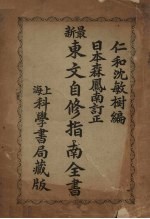 仁和沈敏樹編
日本森鳳南訂正
最新
東文自修指南全書
上海
科學書局藏版